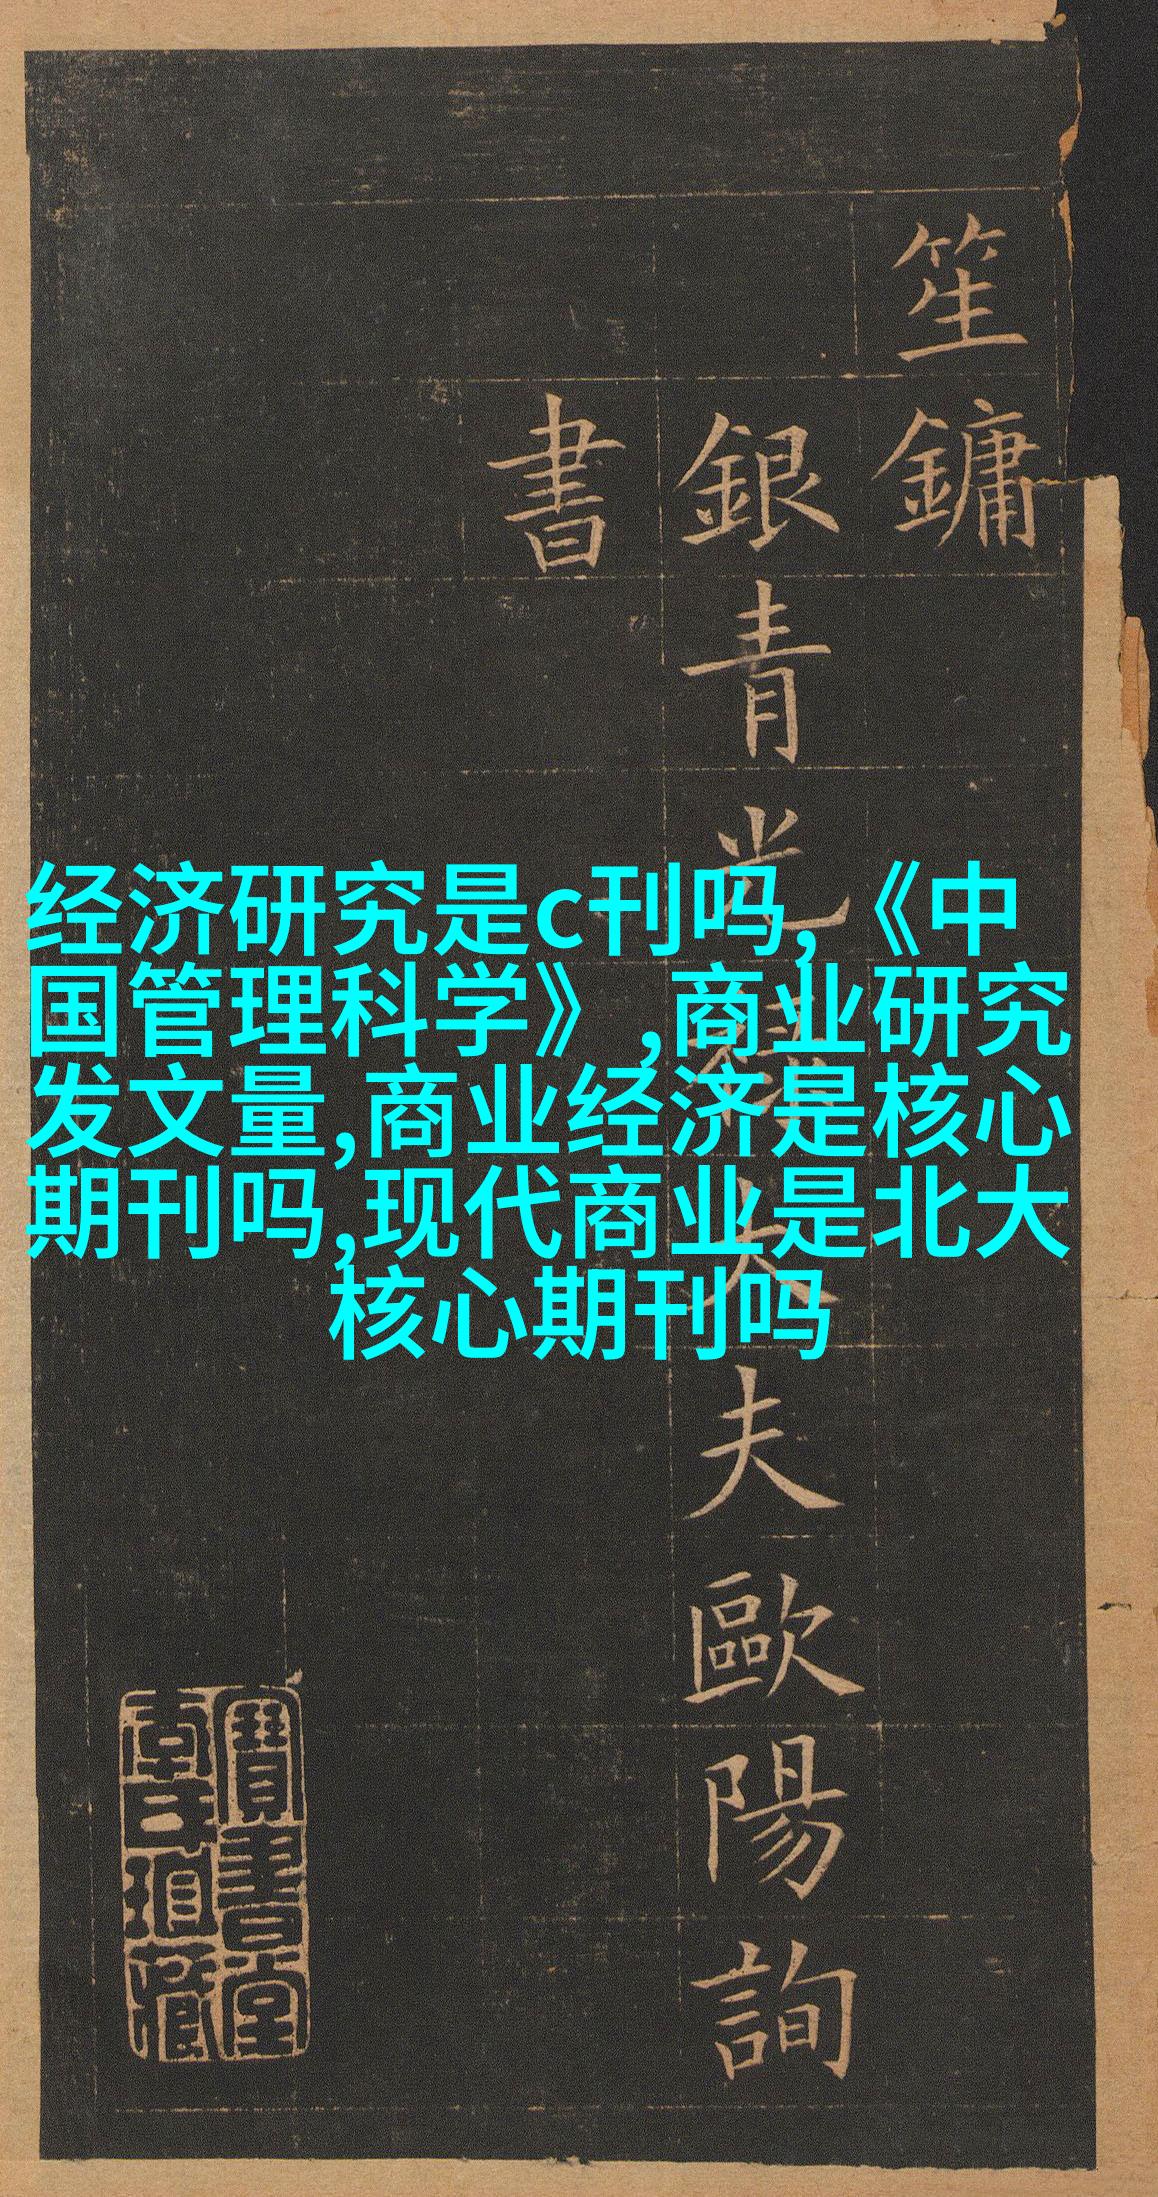 笙鏞
銀青光祿大夫歐陽詢
書
经济研究是c刊吗,《中
国管理科学》,商业研究
发文量,商业经济是核心
期刊吗,现代商业是北大
核心期刊吗